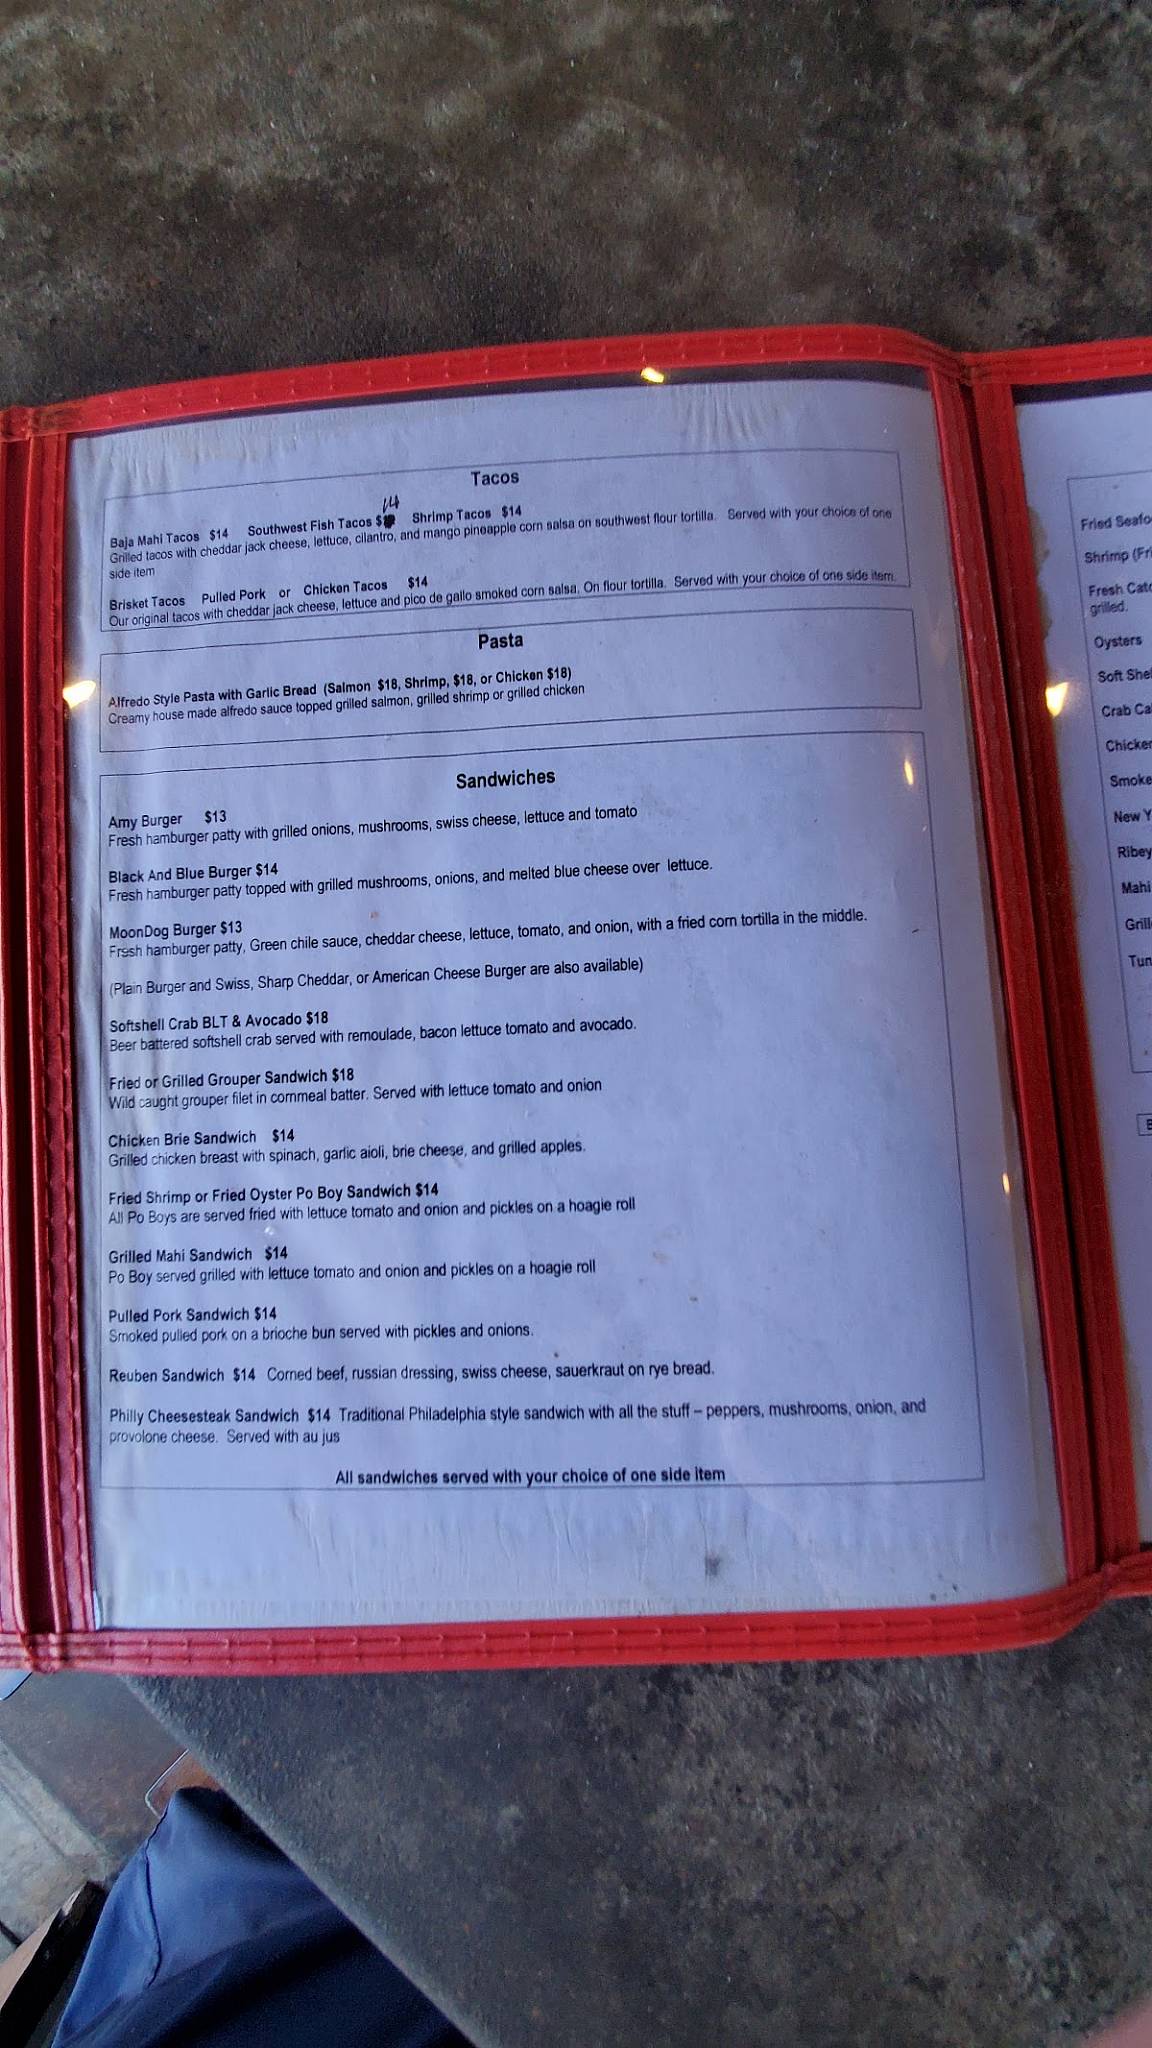 Tacos
14
Baja Mahi Tacos $14 Southwest Fish Tacos $ Shrimp Tacos $14
Grilled tacos with cheddar jack cheese, lettuce, cilantro, and mango pineapple corn salsa on southwest flour tortilla. Served with your choice of one
side item
Brisket Tacos Pulled Pork or Chicken Tacos $14
Our original tacos with cheddar jack cheese, lettuce and pico de gallo smoked corn salsa. On flour tortilla. Served with your choice of one side item.
Pasta
Alfredo Style Pasta with Garlic Bread (Salmon $18, Shrimp, $18, or Chicken $18)
Creamy house made alfredo sauce topped grilled salmon, grilled shrimp or grilled chicken
Sandwiches
Amy Burger $13
Fresh hamburger patty with grilled onions, mushrooms, swiss cheese, lettuce and tomato
Black And Blue Burger $14
Fresh hamburger patty topped with grilled mushrooms, onions, and melted blue cheese over lettuce.
MoonDog Burger $13
Fresh hamburger patty, Green chile sauce, cheddar cheese, lettuce, tomato, and onion, with a fried corn tortilla in the middle.
(Plain Burger and Swiss, Sharp Cheddar, or American Cheese Burger are also available)
Softshell Crab BLT & Avocado $18
Beer battered softshell crab served with remoulade, bacon lettuce tomato and avocado.
Fried or Grilled Grouper Sandwich $18
Wild caught grouper filet in cornmeal batter. Served with lettuce tomato and onion
Chicken Brie Sandwich $14
Grilled chicken breast with spinach, garlic aioli, brie cheese, and grilled apples.
Fried Shrimp or Fried Oyster Po Boy Sandwich $14
All Po Boys are served fried with lettuce tomato and onion and pickles on a hoagie roll
Grilled Mahi Sandwich $14
Po Boy served grilled with lettuce tomato and onion and pickles on a hoagie roll
Pulled Pork Sandwich $14
Smoked pulled pork on a brioche bun served with pickles and onions.
Reuben Sandwich $14 Corned beef, russian dressing, swiss cheese, sauerkraut on rye bread.
Philly Cheesesteak Sandwich $14 Traditional Philadelphia style sandwich with all the stuff – peppers, mushrooms, onion, and
provolone cheese. Served with au jus
All sandwiches served with your choice of one side item
Fried Seafo
Shrimp (Fri
Fresh Catc
grilled.
Oysters
Soft She
Crab Ca
Chicken
Smoke
New Y
Ribey
Mahi
Grill
Tun